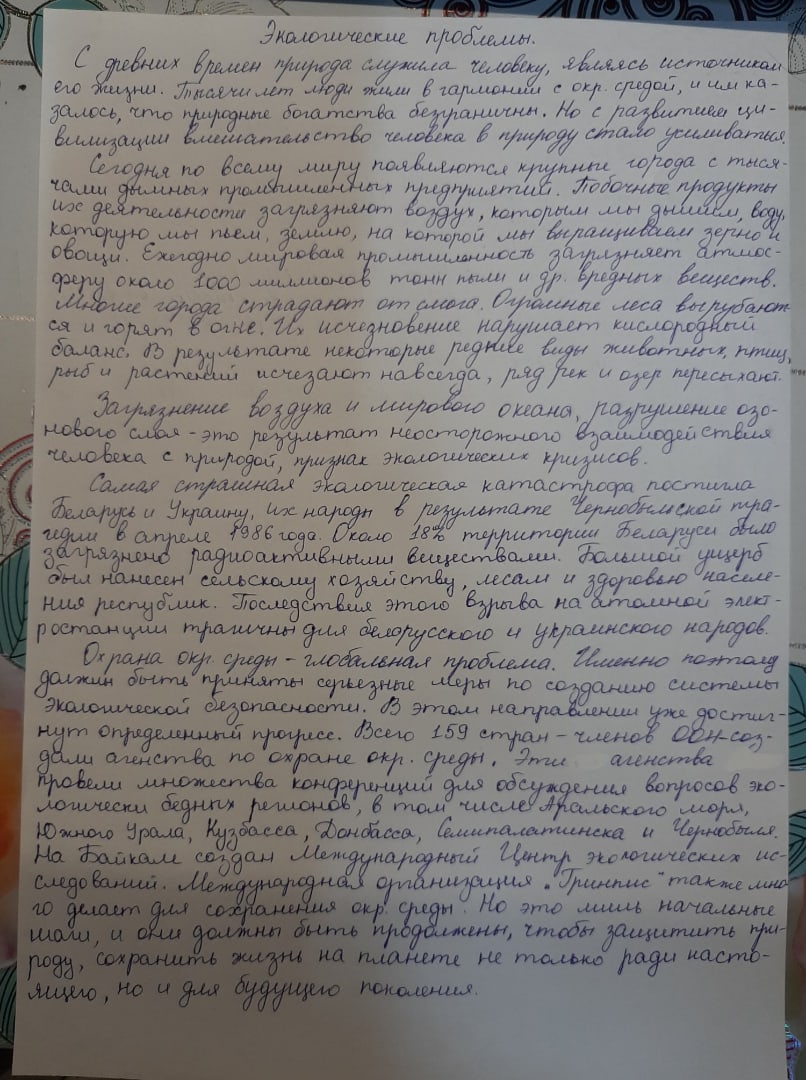 Экологические проблемы.
С древних времен природа служила человеку, являясь источником
его жизни. Тысячи лет люди жили в гармонии с окр. средой, и им ка-
залось, что природные богатства безграничны. Но с развитием ци-
вилизации вмешательство человека в природу стало усиливаться.
Сегодня по всему миру появляются крупные города с тыся-
чами дымных промышленных предприятий. Побочные продукты
их деятельности загрязняют воздух, которым мы дышим, воду,
которую мы пьем, землю, на которой мы выращиваем зерно и
овощи. Ежегодно мировая промышленность загрязняет атмос-
феру около 1000 миллионов тонн пыли и др. вредных веществ.
Многие города страдают от смога. Огромные леса вырубают-
ся и горят в огне. Их исчезновение нарушает кислородный
баланс. В результате некоторые редкие виды животных, птиц,
рыб и растений исчезают навсегда, ряд рек и озер пересыхают.
Загрязнение воздуха и мирового океана, разрушение озо-
нового слоя - это результат неосторожного взаимодействия
человека с природой, признак экологических кризисов.
Самая страшная экологическая катастрофа постигла
Беларусь и Украину, их народы в результате Чернобыльской тра-
гедии в апреле 1986 года. Около 18% территории Беларуси было
загрязнено радиоактивными веществами. Большой ущерб
был нанесен сельскому хозяйству, лесам и здоровью населе-
ния республик. Последствия этого взрыва на атомной элект-
ростанции трагичны для белорусского и украинского народов.
Охрана окр. среды - глобальная проблема. Именно поэтому
должны быть приняты серьезные меры по созданию системы
экологической безопасности. В этом направлении уже достиг-
нут определенный прогресс. Всего 159 стран - членов ООН соз-
дали агенства по охране окр. среды. Эти агенства
провели множества конференций для обсуждения вопросов эко-
логически бедных регионов, в том числе Аральского моря,
Южного Урала, Кузбасса, Донбасса, Семипалатинска и Чернобыля.
На Байкале создан Международный Центр экологических ис-
следований. Международная организация "Гринпис" также мно-
го делает для сохранения окр. среды. Но это лишь начальные
шаги, и они должны быть продолжены, чтобы защитить при-
роду, сохранить жизнь на планете не только ради насто-
ящего, но и для будущего поколения.